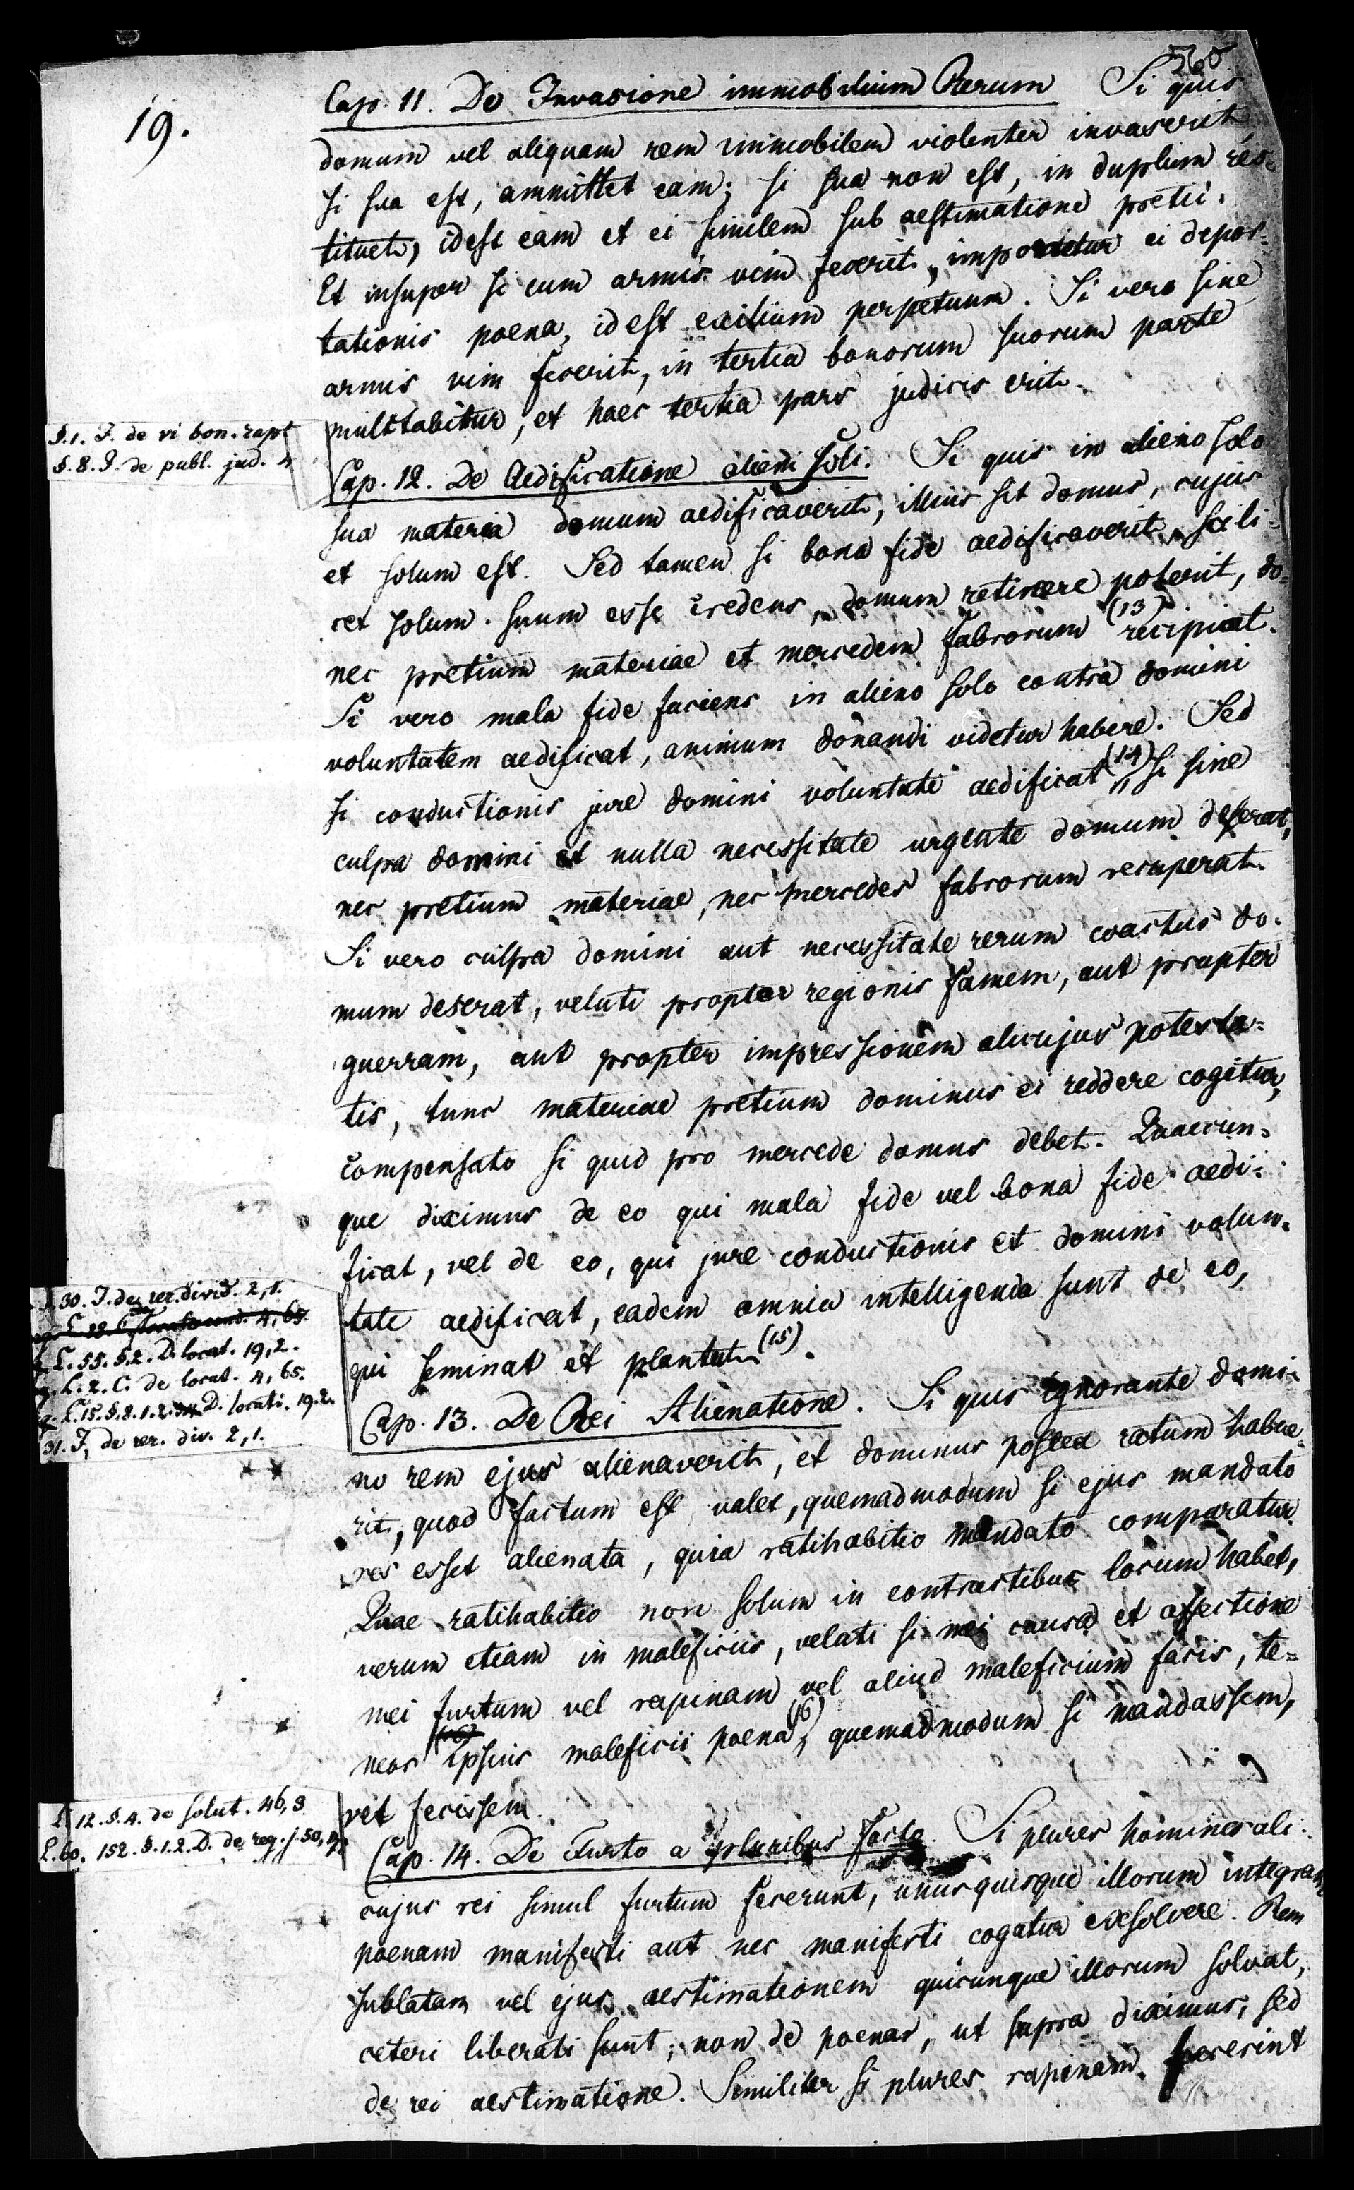 560
19.
Cap. 11. De Invasione immobilium Rerum Si quis
domum vel aliquam rem immobilem violenter invaserit
si sua est, ammittet eam; si sua non est, in duplum res-
tituet, idest eam et ei similem sub aestimatione pretii.
Et insuper si cum armis vim fecerit, imponetur ei depor-
tationis poena, id est exilium perpetuum. Si vero sine
armis vim fecerit, in tertia bonorum suorum parte
multtabitur, et haec tertia pars judicis erit.
§.1. I. de vi bon. rapt
§.8. I. de publ. jud. 4
Cap. 12. De Aedificatione alieni soli. Si quis in alieno solo
sua materia domum aedificaverit, illius sit domus, cujus
et solum est. Sed tamen si bona fide aedificaverit, scili-
cet solum suum esse credens, domum retinere poterit, do-
nec pretium materiae et mercedem fabrorum (13) recipiat.
Si vero mala fide faciens in alieno solo contra domini
voluntatem aedificat, animum donandi videtur habere. Sed
si conductionis jure domini voluntate aedificat (14), si sine
culpa domini et nulla necessitate urgente domum deserat,
nec pretium materiae, nec mercedes fabrorum recuperat.
Si vero culpa domini aut necessitate rerum coactus do-
mum deserat, veluti propter regionis famem, aut propter
guerram, aut propter impressionem alicujus potesta-
tis, tunc materiae pretium dominus ei reddere cogitur,
compensato si quid pro mercede domus debet. Quaecun-
que diximus de eo qui mala fide vel bona fide aedi-
ficat, vel de eo, qui jure conductionis et domini volun-
tate aedificat, eadem omnia intelligenda sunt de eo,
qui seminat et plantat (15).
30. I. de rer. divid. 2,1.
L. 55. §.2. D. locat. 19,2.
L. 2. C. de locat. 4,65.
L. 15. §.8.1.2. D. locati. 19.2.
31. I. de rer. div. 2,1.
Cap. 13. De Rei Alienatione. Si quis ignorante domi-
no rem ejus alienaverit, et dominus postea ratum habue-
rit, quod factum est valet, quemadmodum si ejus mandato
res esset alienata, quia ratihabitio mandato comparatur.
Quae ratihabitio non solum in contractibus locum habet,
verum etiam in maleficiis, veluti si mei causa et affectione
mei furtum vel rapinam vel aliud maleficium facis, te-
neor ipsius maleficii poena (16), quemadmodum si mandassem,
vel fecissem.
L. 12. §.4. de solut. 46,3
L. 60. 152. §.1.2. D. de reg. j. 50,17
Cap. 14. De Furto a pluribus facto. Si plures homines ali-
cujus rei simul furtum fecerunt, unusquisque illorum integram
poenam manifesti aut nec manifesti cogatur exsolvere. Rem
sublatam vel ejus aestimationem quicunque illorum solvat,
ceteri liberati sunt; non de poenas, ut supra diximus, sed
de rei aestimatione. Similiter si plures rapinam fecerint